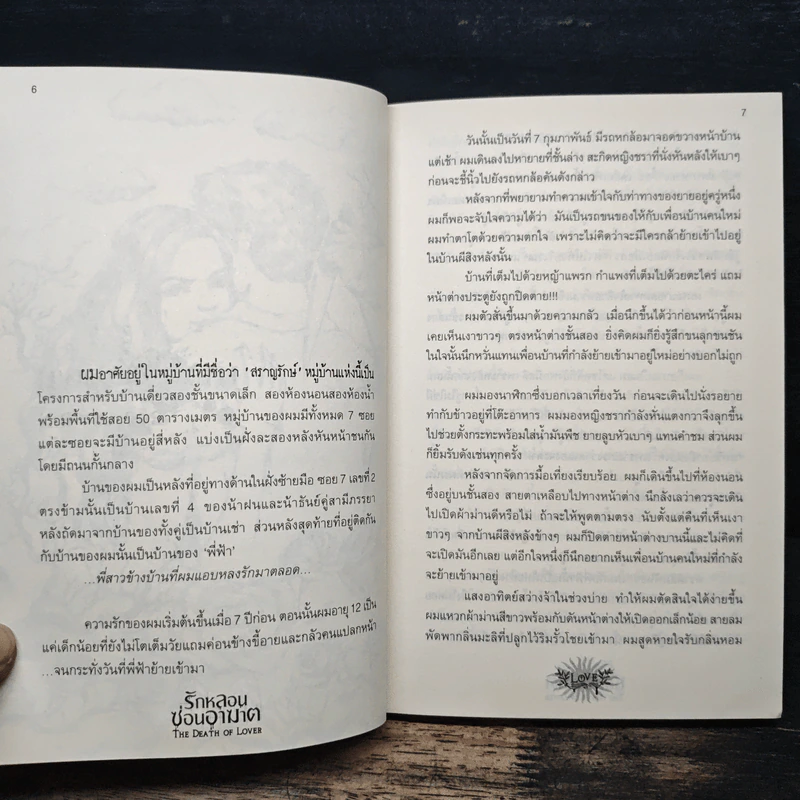 6
ผมอาศัยอยู่ในหมู่บ้านที่มีชื่อว่า ‘สราญรักษ์’ หมู่บ้านแห่งนี้เป็น
โครงการสำหรับบ้านเดี่ยวสองชั้นขนาดเล็ก สองห้องนอนสองห้องน้ำ
พร้อมพื้นที่ใช้สอย 50 ตารางเมตร หมู่บ้านของผมมีทั้งหมด 7 ซอย
แต่ละซอยจะมีบ้านอยู่สี่หลัง แบ่งเป็นฝั่งละสองหลังหันหน้าชนกัน
โดยมีถนนกั้นกลาง
บ้านของผมเป็นหลังที่อยู่ทางด้านในฝั่งซ้ายมือ ซอย 7 เลขที่ 2
ตรงข้ามนั้นเป็นบ้านเลขที่ 4 ของน้าฝนและน้าธันย์คู่สามีภรรยา
หลังถัดมาจากบ้านของทั้งคู่เป็นบ้านเช่า ส่วนหลังสุดท้ายที่อยู่ติดกัน
กับบ้านของผมนั้นเป็นบ้านของ ‘พี่ฟ้า’
...พี่สาวข้างบ้านที่ผมแอบหลงรักมาตลอด...
ความรักของผมเริ่มต้นขึ้นเมื่อ 7 ปีก่อน ตอนนั้นผมอายุ 12 เป็น
แค่เด็กน้อยที่ยังไม่โตเต็มวัยแถมค่อนข้างขี้อายและกลัวคนแปลกหน้า
...จนกระทั่งวันที่พี่ฟ้าย้ายเข้ามา
รักหลอน
ซ่อนอาฆาต
THE DEATH OF LOVER
7
วันนั้นเป็นวันที่ 7 กุมภาพันธ์ มีรถหกล้อมาจอดขวางหน้าบ้าน
แต่เช้า ผมเดินลงไปหายายที่ชั้นล่าง สะกิดหญิงชราที่นั่งหันหลังให้เบาๆ
ก่อนจะชี้นิ้วไปยังรถหกล้อคันดังกล่าว
หลังจากที่พยายามทำความเข้าใจกับท่าทางของยายอยู่ครู่หนึ่ง
ผมก็พอจะจับใจความได้ว่า มันเป็นรถขนของให้กับเพื่อนบ้านคนใหม่
ผมทำตาโตด้วยความตกใจ เพราะไม่คิดว่าจะมีใครกล้าย้ายเข้าไปอยู่
ในบ้านผีสิงหลังนั้น
บ้านที่เต็มไปด้วยหญ้าแพรก กำแพงที่เต็มไปด้วยตะไคร่ แถม
หน้าต่างประตูยังถูกปิดตาย!!!
ผมตัวสั่นขึ้นมาด้วยความกลัว เมื่อนึกขึ้นได้ว่าก่อนหน้านี้ผม
เคยเห็นเงาขาวๆ ตรงหน้าต่างชั้นสอง ยิ่งคิดผมก็ยิ่งรู้สึกขนลุกขนชัน
ในใจนั้นนึกหวั่นแทนเพื่อนบ้านที่กำลังย้ายเข้ามาอยู่ใหม่อย่างบอกไม่ถูก
ผมมองนาฬิกาซึ่งบอกเวลาเที่ยงวัน ก่อนจะเดินไปนั่งรอยาย
ทำกับข้าวอยู่ที่โต๊ะอาหาร ผมมองหญิงชรากำลังหั่นแตงกวาจึงลุกขึ้น
ไปช่วยตั้งกระทะพร้อมใส่น้ำมันพืช ยายลูบหัวเบาๆ แทนคำชม ส่วนผม
ก็ยิ้มรับดังเช่นทุกครั้ง
หลังจากจัดการมื้อเที่ยงเรียบร้อย ผมก็เดินขึ้นไปที่ห้องนอน
ซึ่งอยู่บนชั้นสอง สายตาเหลือบไปทางหน้าต่าง นึกลังเลว่าควรจะเดิน
ไปเปิดผ้าม่านดีหรือไม่ ถ้าจะให้พูดตามตรง นับตั้งแต่คืนที่เห็นเงา
ขาวๆ จากบ้านผีสิงหลังข้างๆ ผมก็ปิดตายหน้าต่างบานนี้และไม่คิดที่
จะเปิดมันอีกเลย แต่อีกใจหนึ่งก็นึกอยากเห็นเพื่อนบ้านคนใหม่ที่กำลัง
จะย้ายเข้ามาอยู่
แสงอาทิตย์สว่างจ้าในช่วงบ่าย ทำให้ผมตัดสินใจได้ง่ายขึ้น
ผมแหวกผ้าม่านสีขาวพร้อมกับดันหน้าต่างให้เปิดออกเล็กน้อย สายลม
พัดพากลิ่นมะลิที่ปลูกไว้ริมรั้วโชยเข้ามา ผมสูดหายใจรับกลิ่นหอม
LOVE